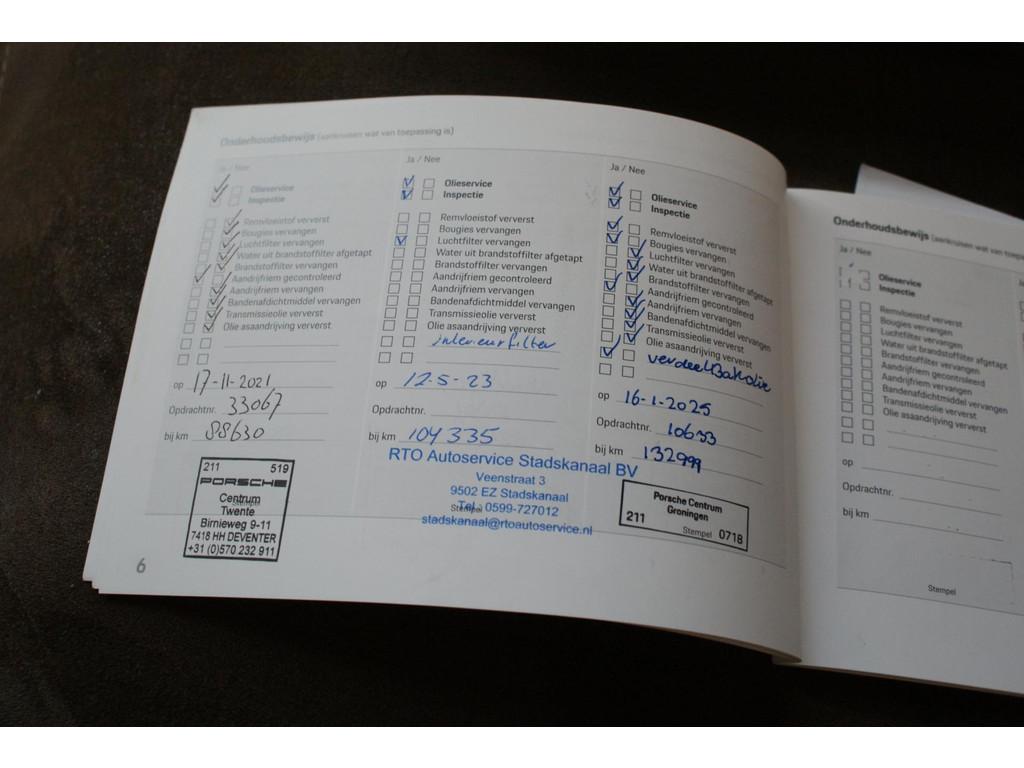 Onderhoudsbewijs (aankruisen wat van toepassing is)
Ja / Nee
Olieservice
Inspectie
Remvloeistof ververst
Bougies vervangen
Luchtfilter vervangen
Water uit brandstoffilter afgetapt
Brandstoffilter vervangen
Aandrijfriem gecontroleerd
Aandrijfriem vervangen
Bandenafdichtmiddel vervangen
Transmissieolie ververst
Olie asaandrijving ververst
op 17-11-2021
Opdrachtnr. 33067
bij km 88630
211 519
PORSCHE
Centrum
Twente
Birnieweg 9-11
7418 HH DEVENTER
+31 (0)570 232 911
6
Ja / Nee
Olieservice
Inspectie
Remvloeistof ververst
Bougies vervangen
Luchtfilter vervangen
Water uit brandstoffilter afgetapt
Brandstoffilter vervangen
Aandrijfriem gecontroleerd
Aandrijfriem vervangen
Bandenafdichtmiddel vervangen
Transmissieolie ververst
Olie asaandrijving ververst
interieurfilter
op 12-5-23
Opdrachtnr.
bij km 104335
RTO Autoservice Stadskanaal BV
Veenstraat 3
9502 EZ Stadskanaal
Stempel
Tel. 0599-727012
stadskanaal@rtoautoservice.nl
Ja / Nee
Olieservice
Inspectie
Remvloeistof ververst
Bougies vervangen
Luchtfilter vervangen
Water uit brandstoffilter afgetapt
Brandstoffilter vervangen
Aandrijfriem gecontroleerd
Aandrijfriem vervangen
Bandenafdichtmiddel vervangen
Transmissieolie ververst
Olie asaandrijving ververst
verdeelbakolie
op 16-1-2025
Opdrachtnr. 10633
bij km 132999
Porsche Centrum
Groningen
211 Stempel 0718
Onderhoudsbewijs (aankruisen wat van toepas
Ja / Nee
Olieservice
Inspectie
Remvloeistof ververst
Bougies vervangen
Luchtfilter vervangen
Water uit brandstoffilter afgetapt
Brandstoffilter vervangen
Aandrijfriem gecontroleerd
Aandrijfriem vervangen
Bandenafdichtmiddel vervangen
Transmissieolie ververst
Olie asaandrijving ververst
op
Opdrachtnr.
bij km
Stempel